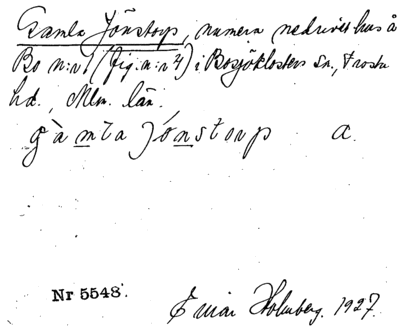 Gamla Jönstorp, numera nedrivet hus å
Bo n:r 1 (fig. n:r 4) i Bosjöklosters sn., Frosta
hd., Mlm. län.
gàmla jónstorp a.
Nr 5548.
Einar Holmberg. 1927.